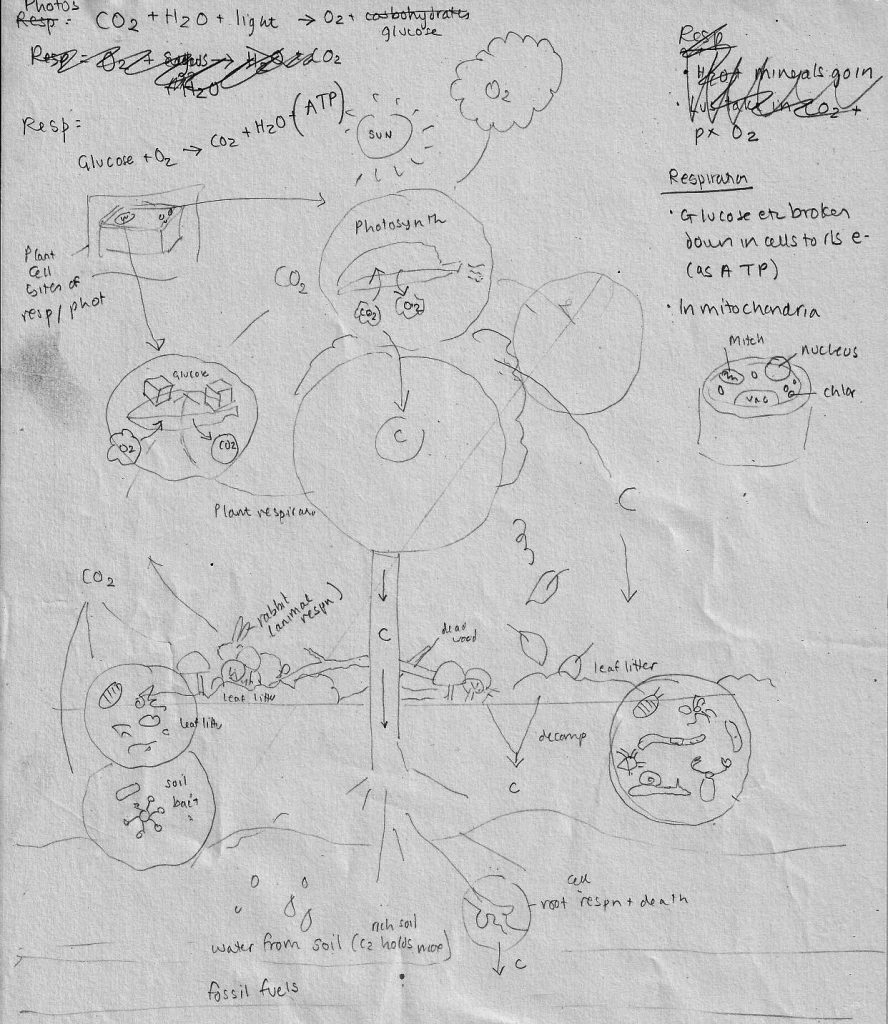 Photos
Resp: CO2 + H2O + light → O2 + carbohydrates
glucose
Resp = O2 + sugars → H2O + CO2
+ H2O
Resp:
Glucose + O2 → CO2 + H2O + (ATP)
SUN
O2
Resp
· H2O + minerals go in
· take in CO2 +
px O2
Respiration
· Glucose etc broken
down in cells to rls e-
(as ATP)
· In mitochondria
Mitch
nucleus
chlor
VAC
Plant
Cell
sites of
resp/phot
Photosynth
CO2
CO2
O2
GLUCOSE
O2
CO2
C
C
Plant respiran
CO2
rabbit
(animal
respn)
C
dead
wood
leaf litter
leaf litter
leaf litter
decomp
C
soil
bact
cell
root respn + death
C
rich soil
water from soil (C2 holds more)
fossil fuels